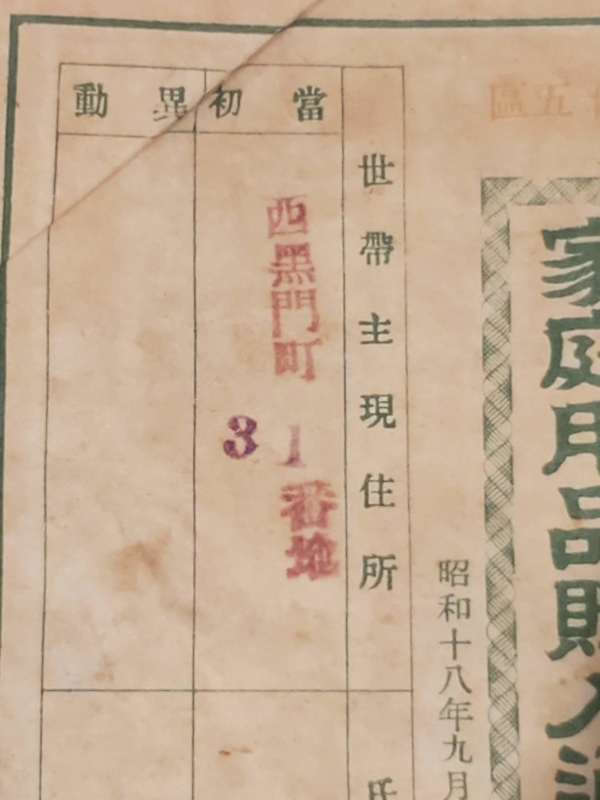 五區
家庭用品購入通
昭和十八年九月
世帶主現住所
氏
當初
西黑門町 1番地
3
異動